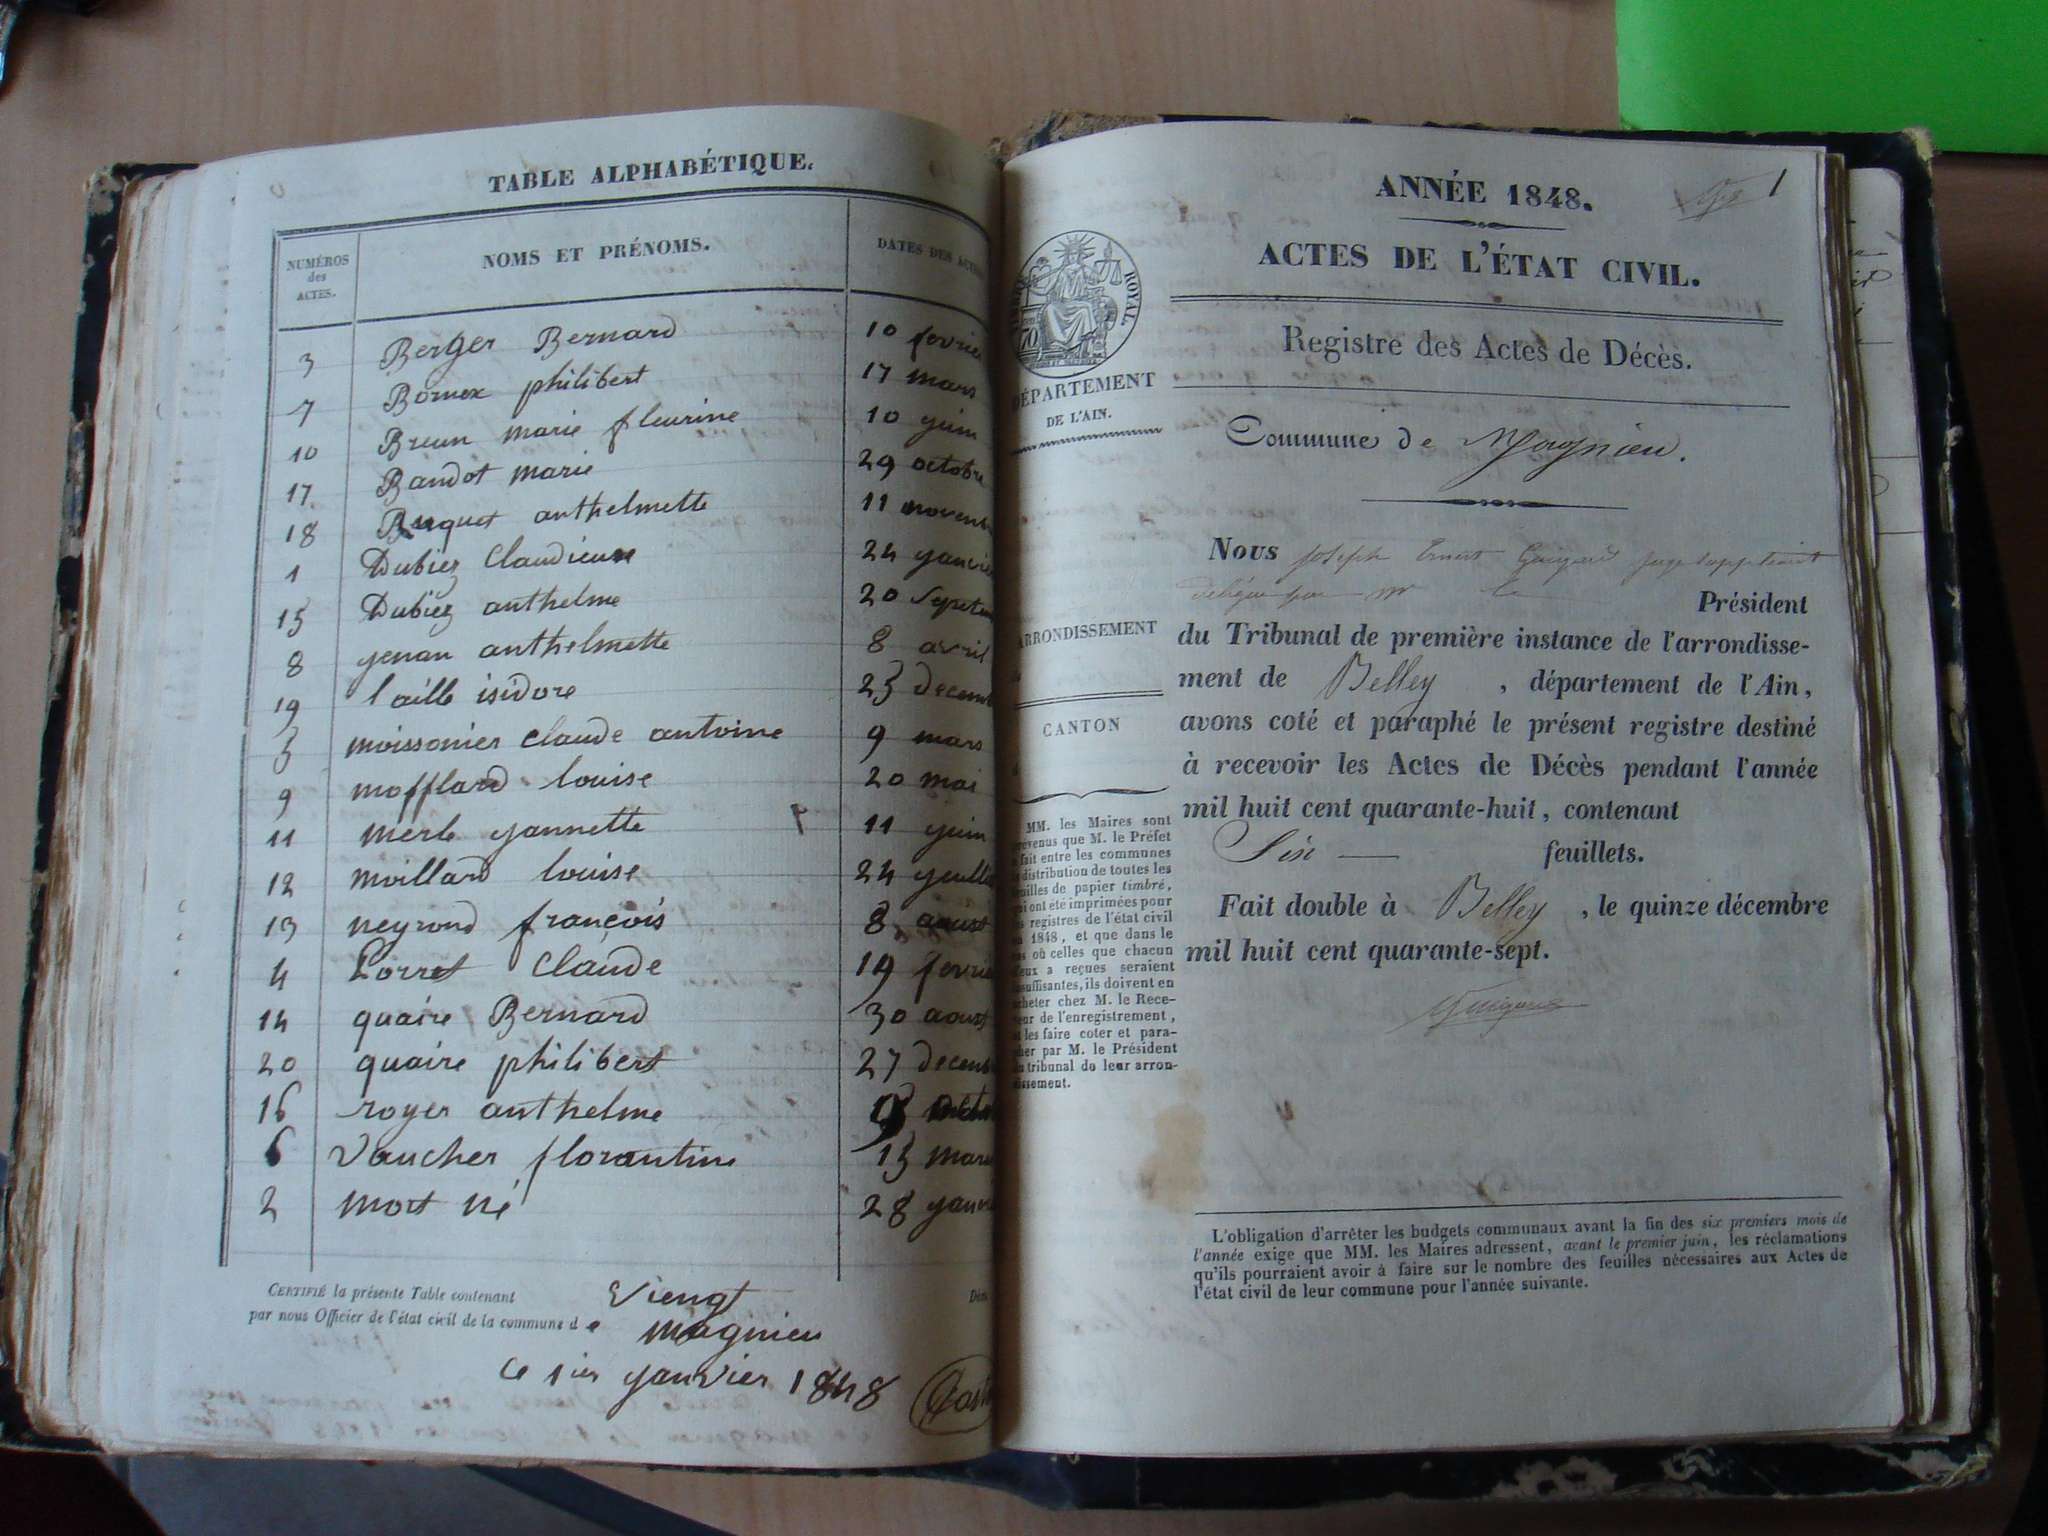 TABLE ALPHABÉTIQUE.
NUMÉROS des ACTES. NOMS ET PRÉNOMS. DATES DES ACTES
3 Berger Bernard 10 fevrier
7 Bornex philibert 17 mars
10 Breun marie fleurine 10 yuin
17 Baudot marie 29 octobre
18 Buquet anthelmette 11 novemb
1 Dubiez Claudieune 24 yanvier
15 Dubiez anthelme 20 Sepetem
8 yenan anthelmette 8 avril
19 laille isidore 25 decemb
5 moissonier claude antoine 9 mars
9 mofflard louise 20 mai
11 merle yannette 11 yuin
12 moillard louise 24 yeuille
13 neyrond françois 8 aoust
4 Porret Claude 19 fevrie
14 quaire Bernard 30 aoust
20 quaire philibert 27 decemb
16 royer anthelme
6 Vaucher florantin 15 mars
2 mort né 28 yanv
CERTIFIÉ la présente Table contenant Viengt
par nous Officier de l'état civil de la commune de magnieu
Ce 1ier yanvier 1848
ANNÉE 1848. 1
ACTES DE L'ÉTAT CIVIL.
ROYAL
70
DÉPARTEMENT
DE L'AIN.
Registre des Actes de Décès.
Commune de Magnieu.
Nous Joseph Ernest Guigard juge suppléant
délégué par mr le Président
du Tribunal de première instance de l'arrondisse-
ment de Belley, département de l'Ain,
avons coté et paraphé le présent registre destiné
à recevoir les Actes de Décès pendant l'année
mil huit cent quarante-huit, contenant
Six — feuillets.
Fait double à Belley, le quinze décembre
mil huit cent quarante-sept.
Guigard
ARRONDISSEMENT
CANTON
MM. les Maires sont
prévenus que M. le Préfet
a fait entre les communes
la distribution de toutes les
feuilles de papier timbré,
qui ont été imprimées pour
les registres de l'état civil
en 1848, et que dans le
cas où celles que chacun
d'eux a reçues seraient
insuffisantes, ils doivent en
acheter chez M. le Rece-
veur de l'enregistrement,
et les faire coter et para-
pher par M. le Président
du tribunal de leur arron-
dissement.
L'obligation d'arrêter les budgets communaux avant la fin des six premiers mois de
l'année exige que MM. les Maires adressent, avant le premier juin, les réclamations
qu'ils pourraient avoir à faire sur le nombre des feuilles nécessaires aux Actes de
l'état civil de leur commune pour l'année suivante.